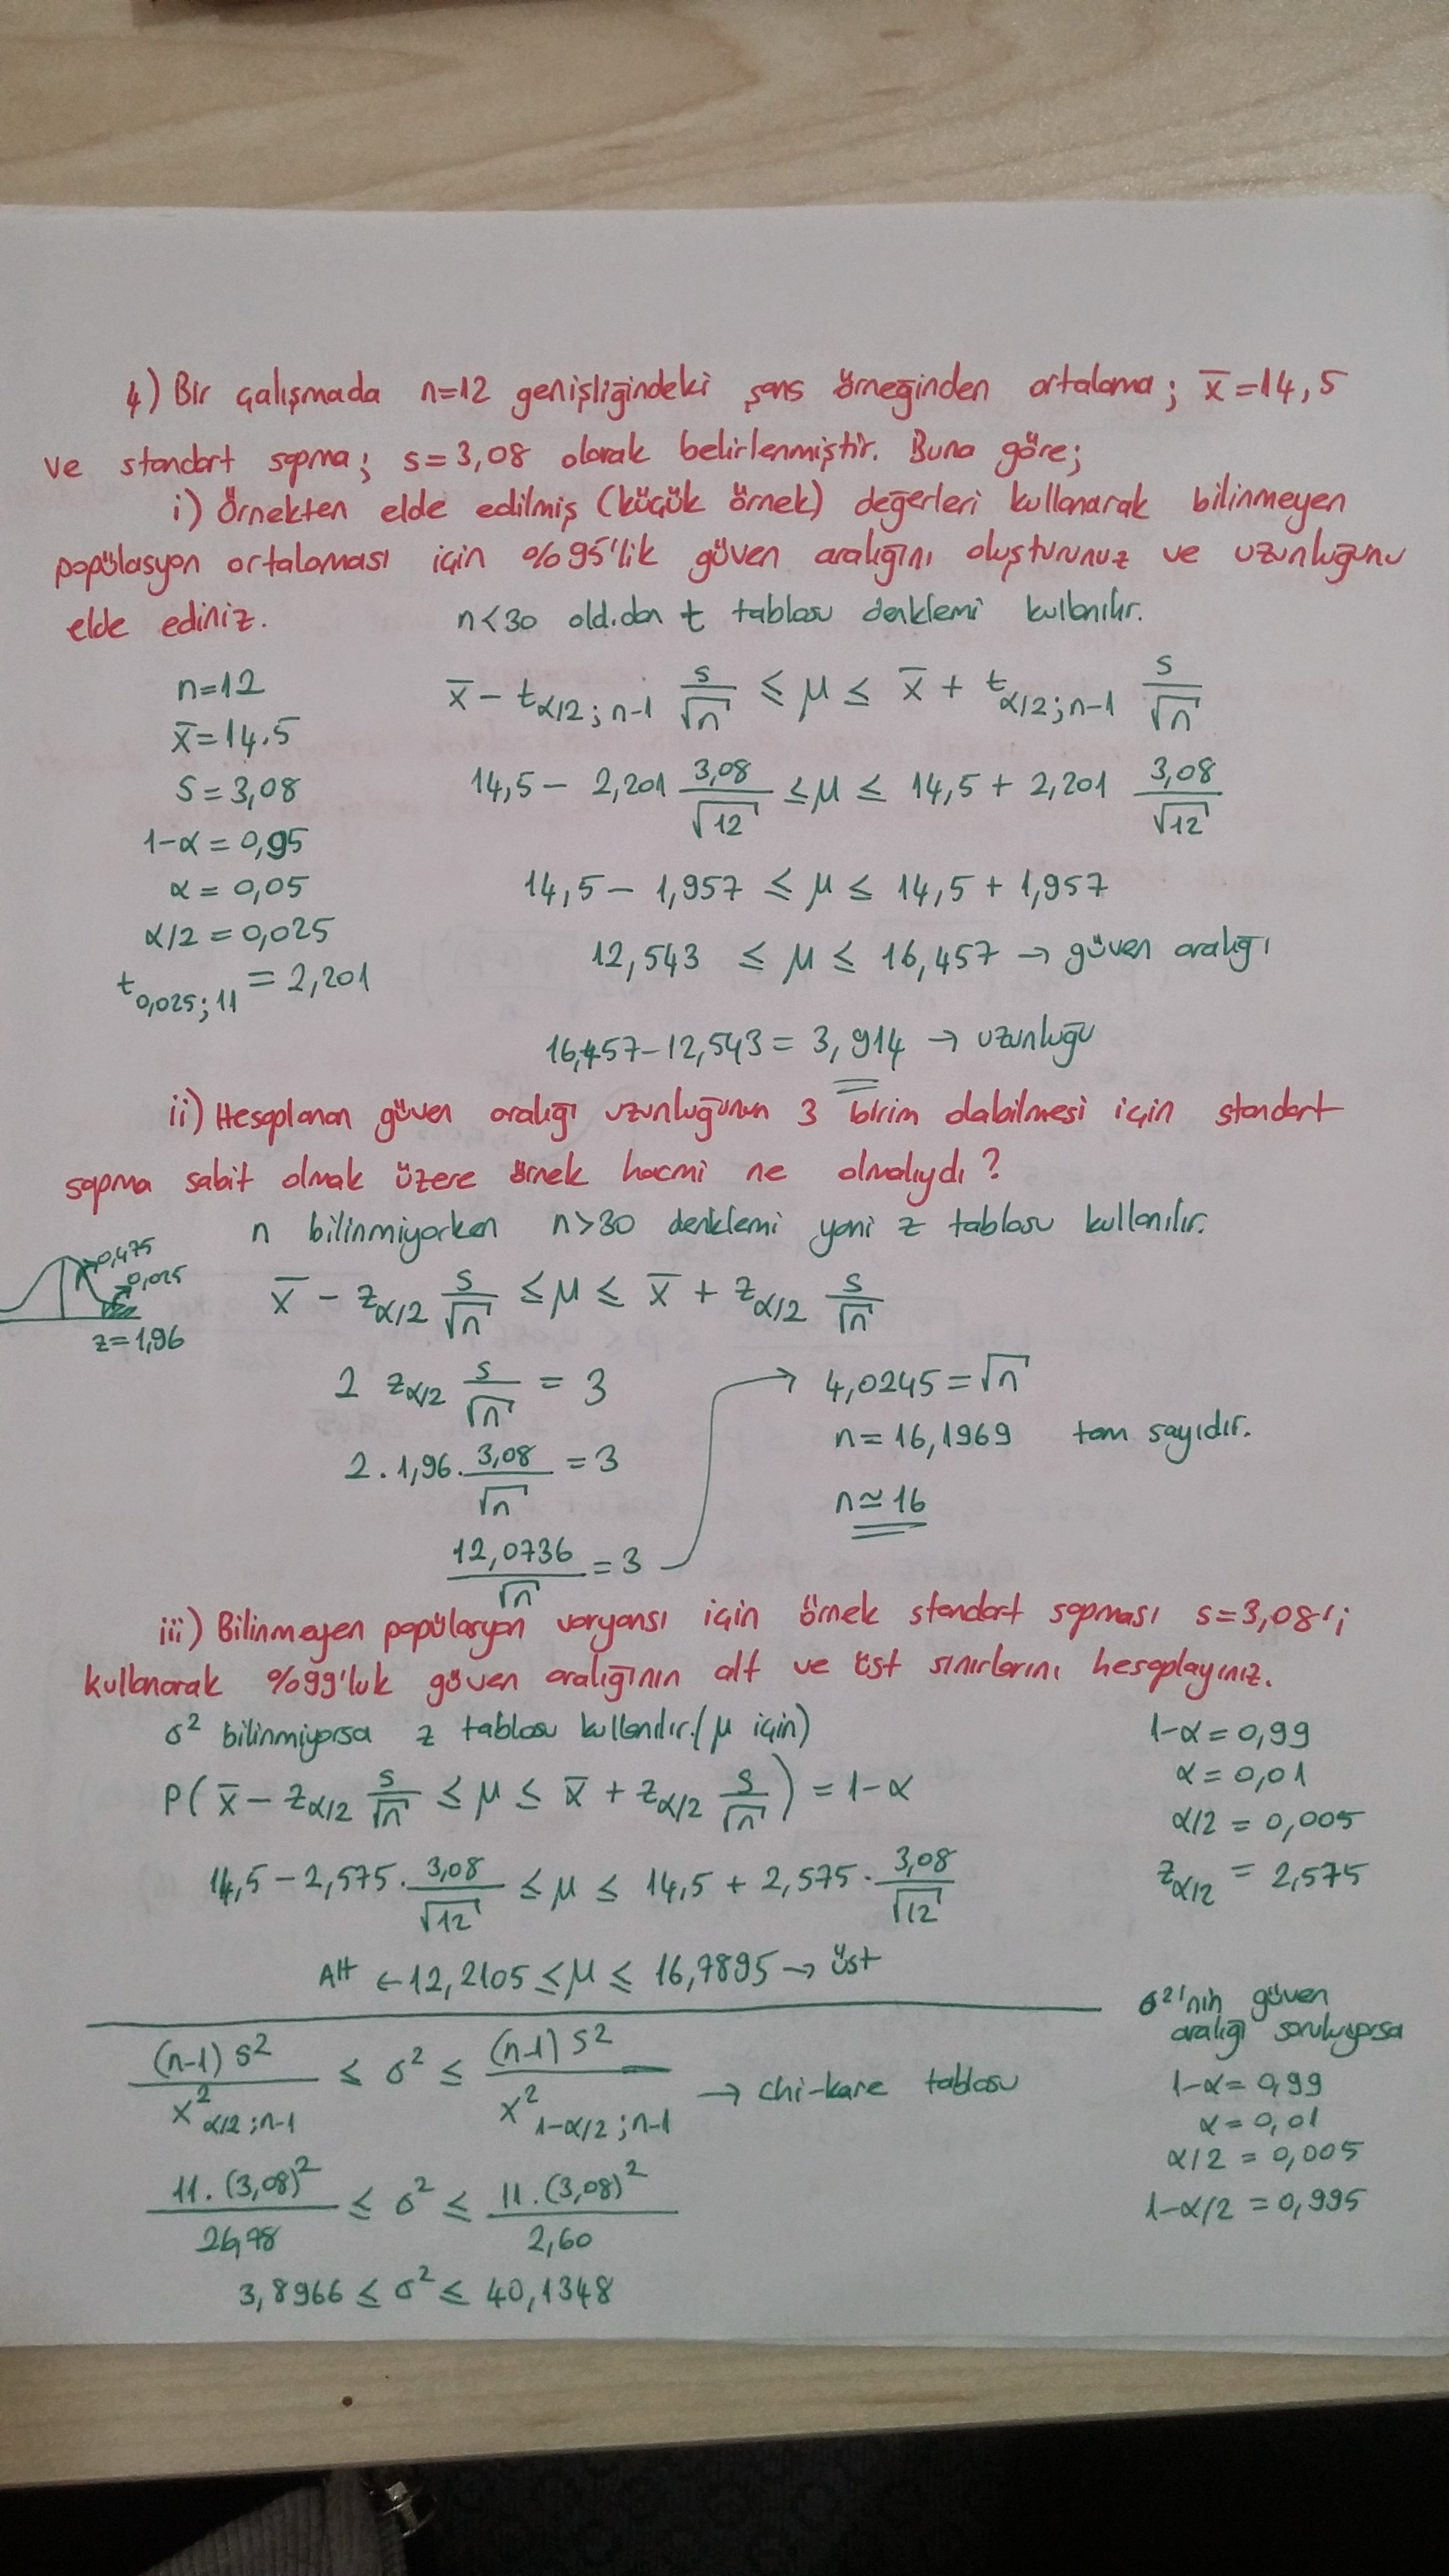 4) Bir çalışmada n=12 genişliğindeki şans örneğinden ortalama; x̄=14,5
ve standart sapma; s=3,08 olarak belirlenmiştir. Buna göre;
i) Örnekten elde edilmiş (küçük örnek) değerleri kullanarak bilinmeyen
popülasyon ortalaması için %95'lik güven aralığını oluşturunuz ve uzunluğunu
elde ediniz.
n<30 old.dan t tablosu denklemi kullanılır.
n=12
x̄=14.5
S=3,08
1-α=0,95
α=0,05
α/2=0,025
t_0,025;11 = 2,201
x̄ - t_α/2;n-1 s/√n ≤ μ ≤ x̄ + t_α/2;n-1 s/√n
14,5 - 2,201 3,08/√12 ≤ μ ≤ 14,5 + 2,201 3,08/√12
14,5 - 1,957 ≤ μ ≤ 14,5 + 1,957
12,543 ≤ μ ≤ 16,457 → güven aralığı
16,457-12,543 = 3,914 → uzunluğu
ii) Hesaplanan güven aralığı uzunluğunun 3 birim olabilmesi için standart
sapma sabit olmak üzere örnek hacmi ne olmalıydı?
n bilinmiyorken n>30 denklemi yani z tablosu kullanılır.
0,475
0,025
z=1,96
x̄ - z_α/2 s/√n ≤ μ ≤ x̄ + z_α/2 s/√n
2 z_α/2 s/√n = 3
2 . 1,96 . 3,08/√n = 3
12,0736/√n = 3
→ 4,0245 = √n
n = 16,1969 tam sayıdır.
n ≃ 16
iii) Bilinmeyen popülasyon varyansı için örnek standart sapması s=3,08'i
kullanarak %99'luk güven aralığının alt ve üst sınırlarını hesaplayınız.
σ² bilinmiyorsa z tablosu kullanılır. (μ için)
P( x̄ - z_α/2 s/√n ≤ μ ≤ x̄ + z_α/2 s/√n ) = 1-α
14,5 - 2,575 . 3,08/√12 ≤ μ ≤ 14,5 + 2,575 . 3,08/√12
Alt ← 12,2105 ≤ μ ≤ 16,7895 → üst
1-α = 0,99
α = 0,01
α/2 = 0,005
z_α/2 = 2,575
(n-1) s²/x²_α/2;n-1 ≤ σ² ≤ (n-1) s²/x²_1-α/2;n-1 → chi-kare tablosu
11.(3,08)²/26,78 ≤ σ² ≤ 11.(3,08)²/2,60
3,8966 ≤ σ² ≤ 40,1348
σ²'nin güven
aralığı soruluyorsa
1-α = 0,99
α = 0,01
α/2 = 0,005
1-α/2 = 0,995